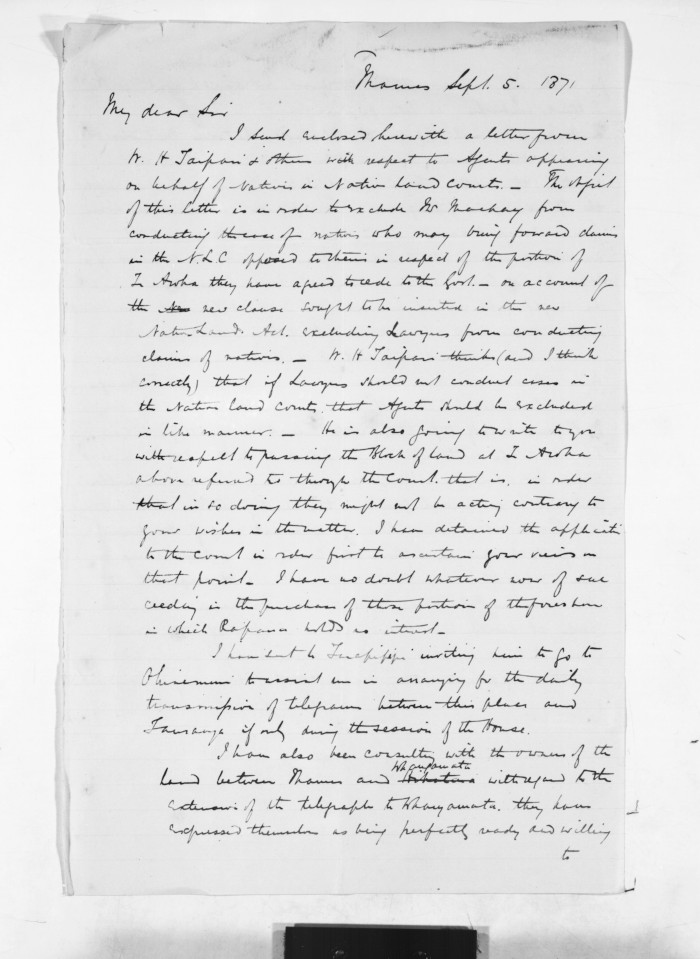 Thames Sept. 5. 1871
My dear Sir
I send enclosed herewith a letter from
W. H Taipari & others with respect to Agents appearing
on behalf of Natives in Native Land Courts. — The object
of this letter is in order to exclude Mr Mackay from
conducting the case of natives who may bring forward claims
in the N.L.C opposed to theirs in respect of the portion of
Te Aroha they have agreed to cede to the Govt. — on account of
the new clause sought to be inserted in the new
Native Lands Act. excluding Lawyers from conducting
claims of natives. — W. H Taipari thinks (and I think
correctly) that if Lawyers should not conduct cases in
the Native land Courts. that Agents should be excluded
in like manner. — He is also going to write to you
with respect to passing the Block of land at Te Aroha
above referred to through the Court. that is. in order
that in so doing they might not be acting contrary to
your wishes in the matter. I have detained the applicati
to the Court in order first to ascertain your views on
that point — I have no doubt whatever now of suc
ceeding in the purchase of those portion of the foreshore
in which Rapana holds no interest —
I have sent to inviting him to go to
Ohinemuri to assist me in arranging for the daily
transmission of telegrams between this place and
Tauranga if only during the session of the House.
I have also been consulting with the owners of the
Whangamata
land between Thames and with regard to the
extension of the telegraph to Whangamata. they have
expressed themselves as being perfectly ready and willing
to